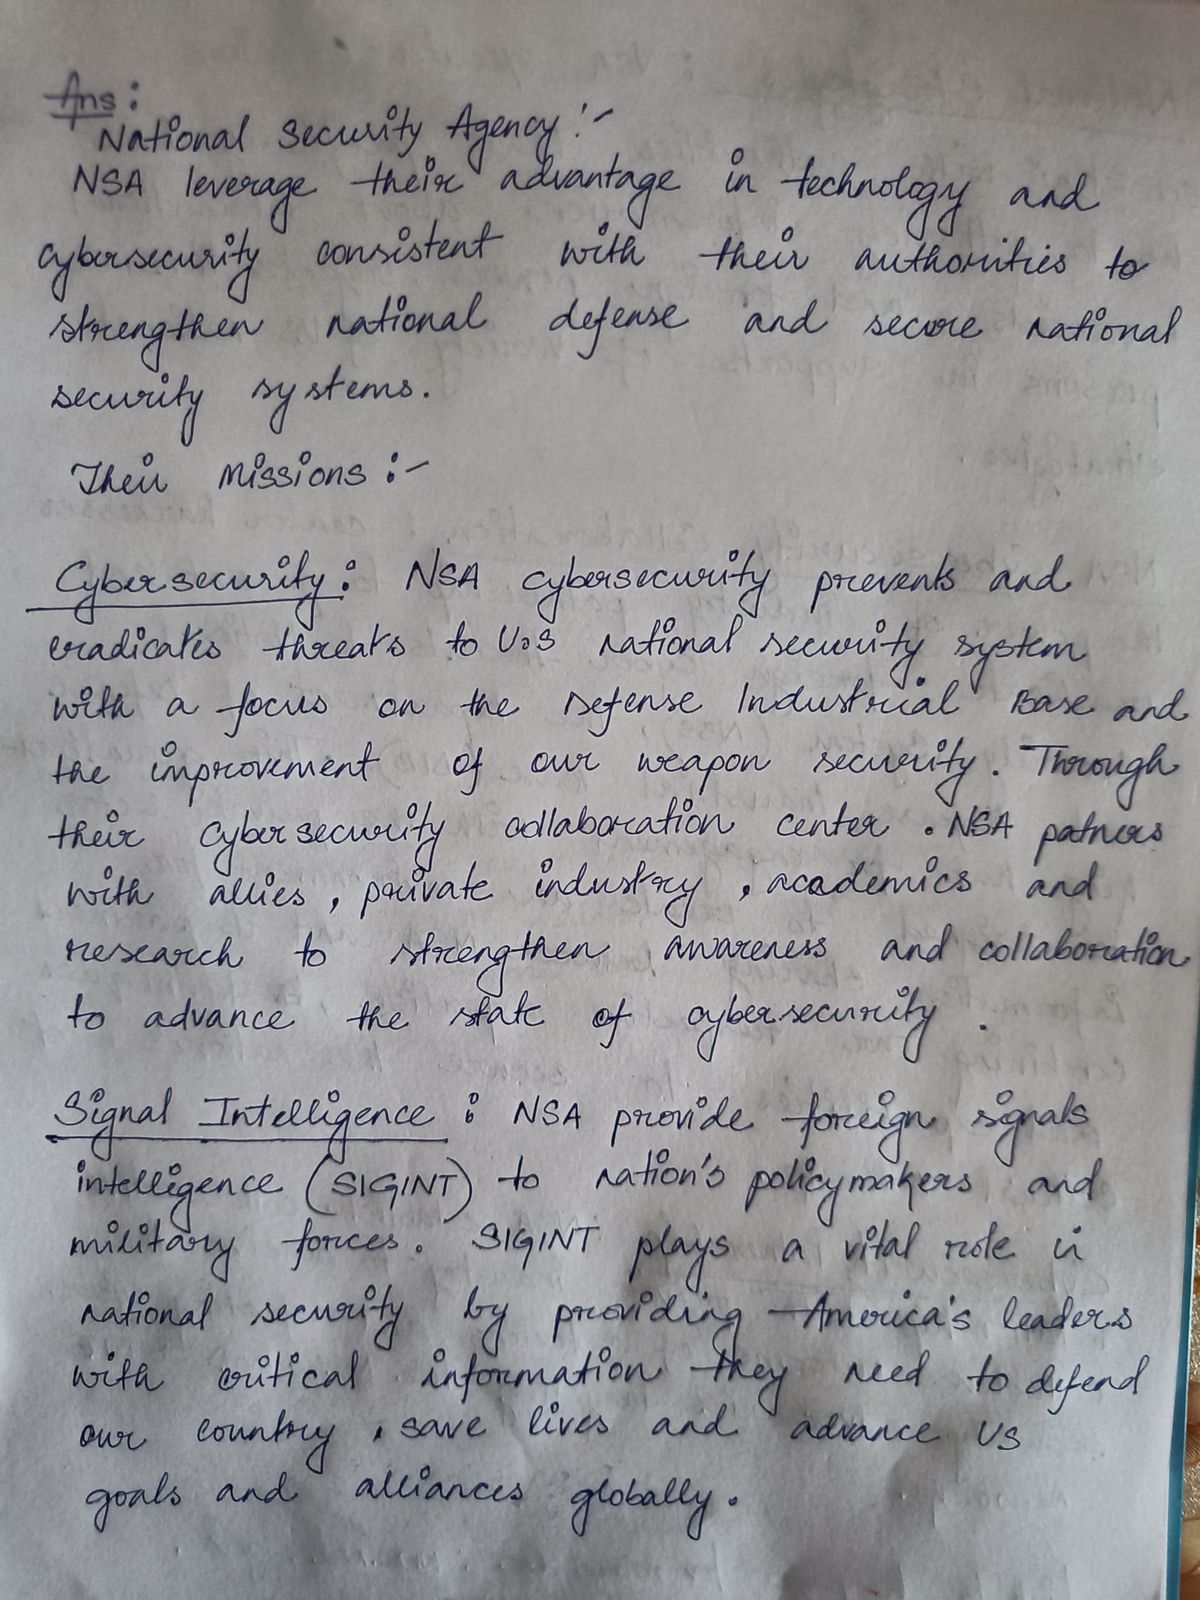 Ans:
National Security Agency:-
NSA leverage their advantage in technology and
cybersecurity consistent with their authorities to
strengthen national defense and secure national
security systems.
Their Missions :-
Cybersecurity: NSA cybersecurity prevents and
eradicates threats to U.S national security system
with a focus on the Defense Industrial Base and
the improvement of our weapon security. Through
their cybersecurity collaboration center . NSA patners
with allies, private industry, academics and
research to strengthen awareness and collaboration
to advance the state of cybersecurity .
Signal Intelligence : NSA provide foreign signals
intelligence (SIGINT) to nation's policymakers and
military forces. SIGINT plays a vital role in
national security by providing America's leaders
with critical information they need to defend
our country, save lives and advance US
goals and alliances globally.